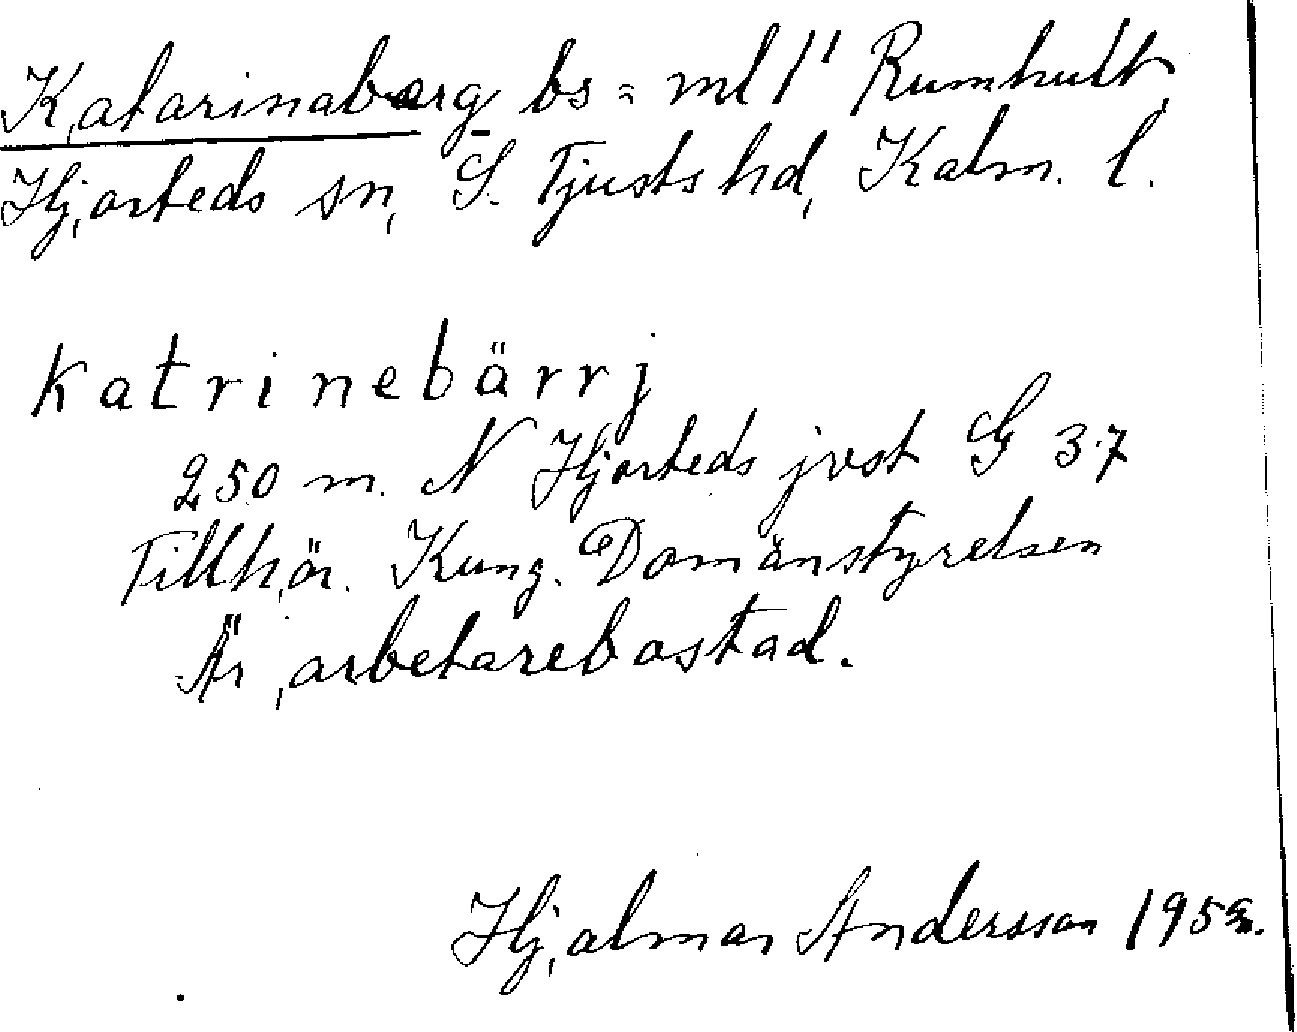 Katarinaberg bs = ml 1'' Rumhult,
Hjorteds sn, S. Tjusts hd, Kalm. l.
katrinebärrj
250 m. N Hjorteds jvst G 3.7
Tillhör. Kung. Domänstyrelsen
Är arbetarebostad.
Hjalmar Andersson